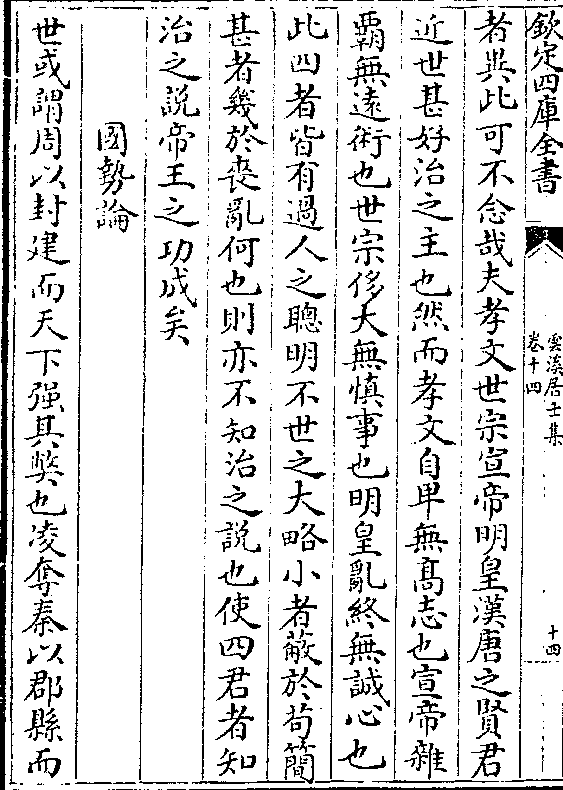 欽定四庫全書
雲溪居士集
卷十四
十四
者與此可不念哉夫孝文世宗宣帝明皇漢唐之賢君
近世甚好治之主也然而孝文自卑無髙志也宣帝雜
覇無遠術也世宗侈大無慎事也明皇亂終無誠心也
此四者皆有過人之聰明不世之大略小者蔽於苟簡
甚者幾於喪亂何也則亦不知治之說也使四君者知
治之說帝王之功成矣
國勢論
世或謂周以封建而天下强其獘也凌奪秦以郡縣而